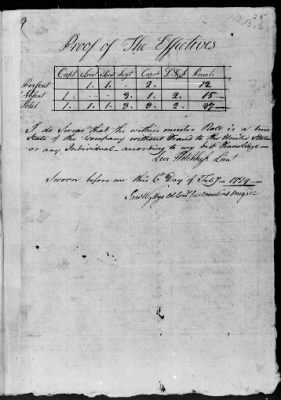 Proof of The Effectives
Capt Lieut Ensn Sergt Corpl D&F Privates
Present 1. 1. . 2. . 12
Absent 1. . . 3. 1. 2. 15
Total 1. 1. 1. 3. 3. 2. 27
I do Swear that the within muster Role is a true
State of the Company without Fraud to the United States
or any Individual according to my best Knowledge
Levi Hotchkiss Lieut
Sworn before me this 6th Day of Feby
Saml Wyllys Col Comdt